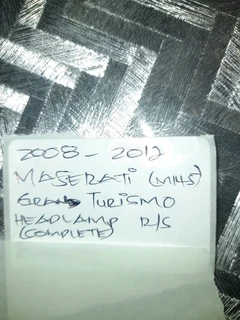 2008 - 2012
MASERATI (M145)
GRAN TURISMO
HEADLAMP R/S
(COMPLETE)